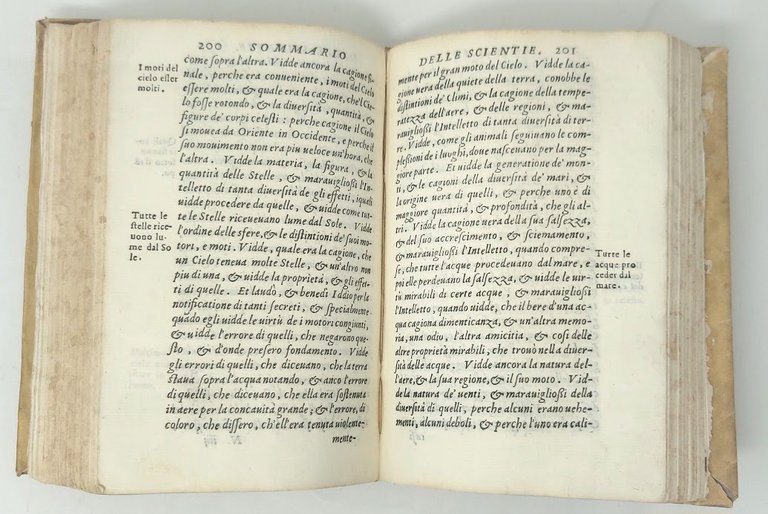 200 SOMMARIO
I moti del
cielo esser
molti.
come sopra l'altra. Vidde ancora la cagione fi-
nale, perche era conueniente, i moti del Cielo
essere molti, & quale era la cagione, che'l Cie-
lo fosse rotondo, & la diuersità, quantità, &
figure de' corpi celesti: perche cagione il Cielo
si mouea da Oriente in Occidente, e perche il
suo mouimento non era piu ueloce un'hora, che
l'altra. Vidde la materia, la figura, & la
quantità delle Stelle, & marauigliossi l'In-
telletto di tanta diuersità de gli effetti, iquali
uidde procedere da quelle, & uidde come tut-
Tutte le
stelle rice
uono lu-
me dal So
le.
te le Stelle riceueuano lume dal Sole. Vidde
l'ordine delle sfere, & distintioni de' suoi mo-
tori, e moti. Vidde, quale era la cagione, che
un Cielo teneua molte Stelle, & un'altro non
piu di una, & uidde la proprietà, & gli effet-
ti di quelle. Et laudò, & benedì Iddio per la
notificatione di tanti secreti, & spécialmente
quado egli uidde le uirtù de i motori congiunti,
& uidde l'errore di quelli, che negarono que-
sto, & d'onde presero fondamento. Vidde
gli errori di quelli, che diceuano, che la terra
staua sopra l'acqua notando, & anco l'errore
di quelli, che diceuano, che ella era sostenuta
in aere per la concauità grande; & l'errore, di
coloro, che differo, ch'ell'era tenuta uiolente-
mente-
DELLE SCIENTIE. 201
mente per il gran moto del Cielo. Vidde la ca-
gione uera della quiete della terra, conobbe le
distintioni de' Climi, & la cagione della tempe-
ratezza dell'aere, & delle regioni, & ma-
rauigliossi l'Intelletto di tanta diuersità di ter-
re. Vidde, come gli animali seguiuano le com-
plessioni de i luoghi, doue nasceuano per la mag-
giore parte. Et uidde la generatione de' mon-
ti, & le cagioni della diuersità de' mari, &
la origine uera di quelli, & perche uno è di
maggiore quantità, & profondità, che gli al-
tri. Vidde la cagione uera della sua salsezza,
& del suo accrescimento, & sciemamento,
& marauigliossi l'Intelletto, quando compre-
se, che tutte l'acque procedeuano dal mare, e
poi elle perdeuano la salsezza, & uidde le uir-
Tutte le
acque pro
ceder dal
mare.
tù mirabili di certe acque, & marauigliossi
l'Intelletto, quando uidde, che il bere d'una ac
qua cagiona dimenticanza, & un'altra memo-
ria, una odio, l'altra amicitia, & così delle
altre proprietà mirabili, che trouò nella diuer-
sità delle acque. Vidde ancora la natura del-
l'aere, & la sua regione, & il suo moto. Vid-
de la natura de' uenti, & marauigliossi della
diuersità di quelli, perche alcuni erano uehe-
menti, alcuni deboli, & perche l'uno era cali-